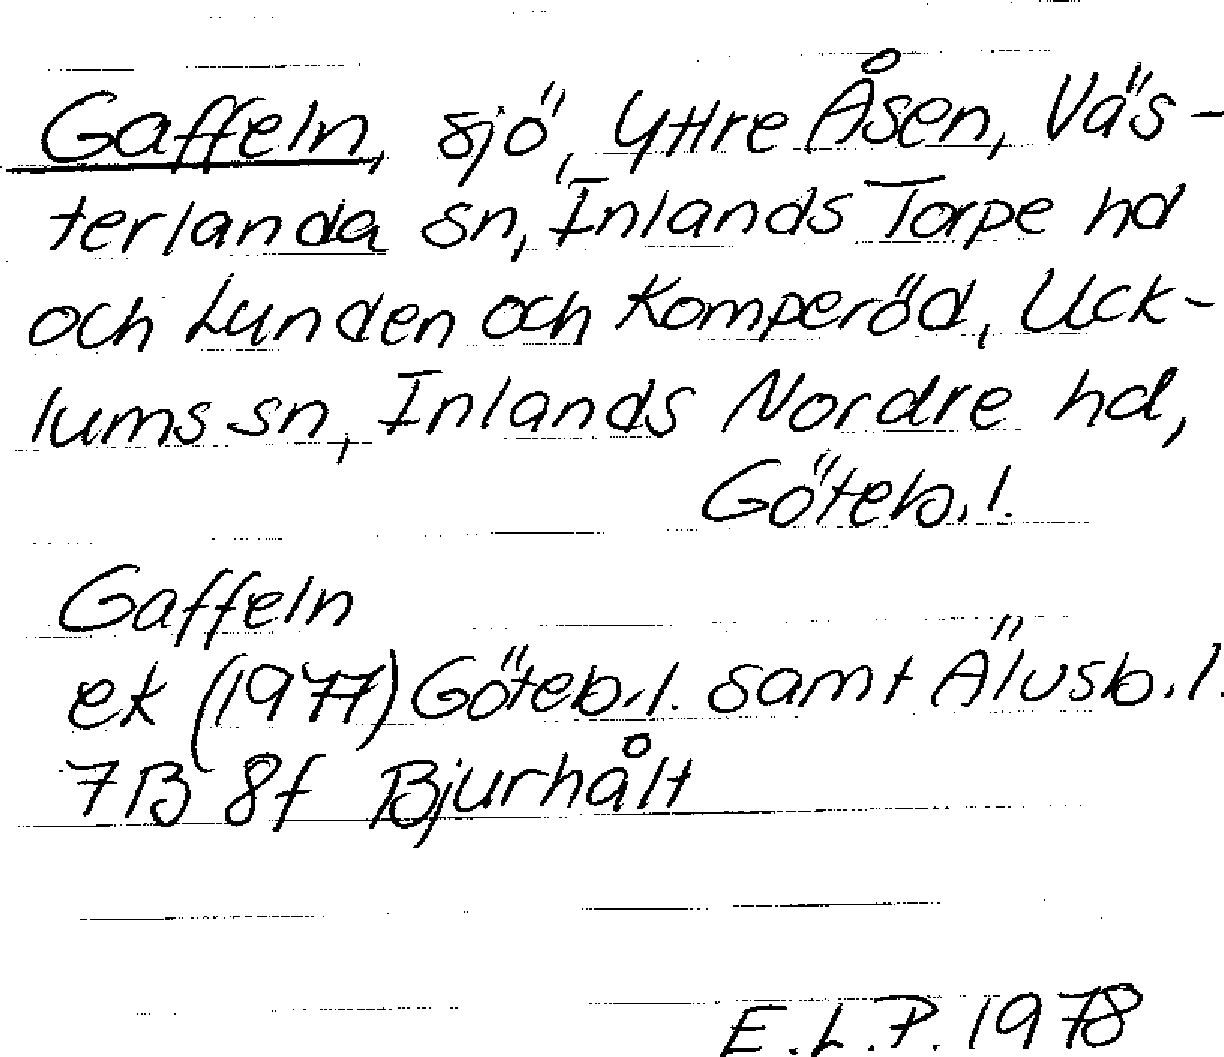 Gaffeln, sjö, Yttre Åsen, Väs-
terlanda sn, Inlands Torpe hd
och Lunden och Komperöd, Uck-
lums sn, Inlands Nordre hd,
Göteb.l.
Gaffeln
ek (1977) Göteb.l. samt Älvsb.l.
7B 8f Bjurhålt
E.L.P. 1978